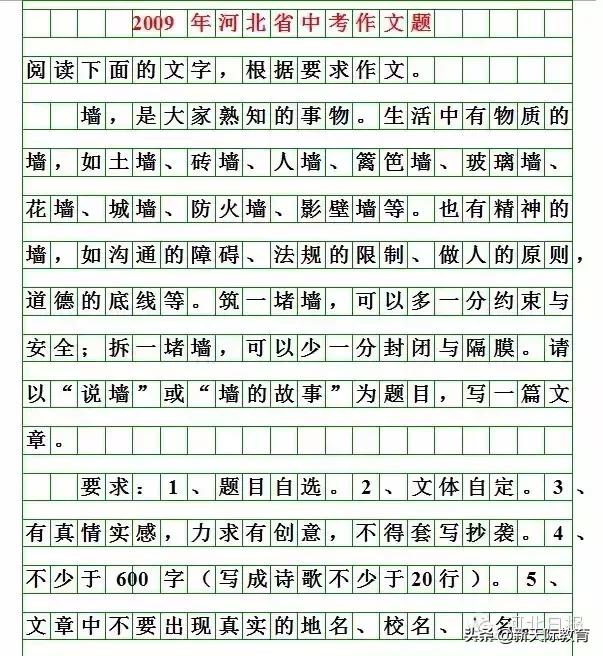 2009 年河北省中考作文题
阅读下面的文字，根据要求作文。
墙，是大家熟知的事物。生活中有物质的
墙，如土墙、砖墙、人墙、篱笆墙、玻璃墙、
花墙、城墙、防火墙、影壁墙等。也有精神的
墙，如沟通的障碍、法规的限制、做人的原则，
道德的底线等。筑一堵墙，可以多一分约束与
安全；拆一堵墙，可以少一分封闭与隔膜。请
以“说墙”或“墙的故事”为题目，写一篇文
章。
要求：1、题目自选。2、文体自定。3、
有真情实感，力求有创意，不得套写抄袭。4、
不少于 600 字（写成诗歌不少于20行）。5、
文章中不要出现真实的地名、校名、人名
河北日报
头条 @新天际教育